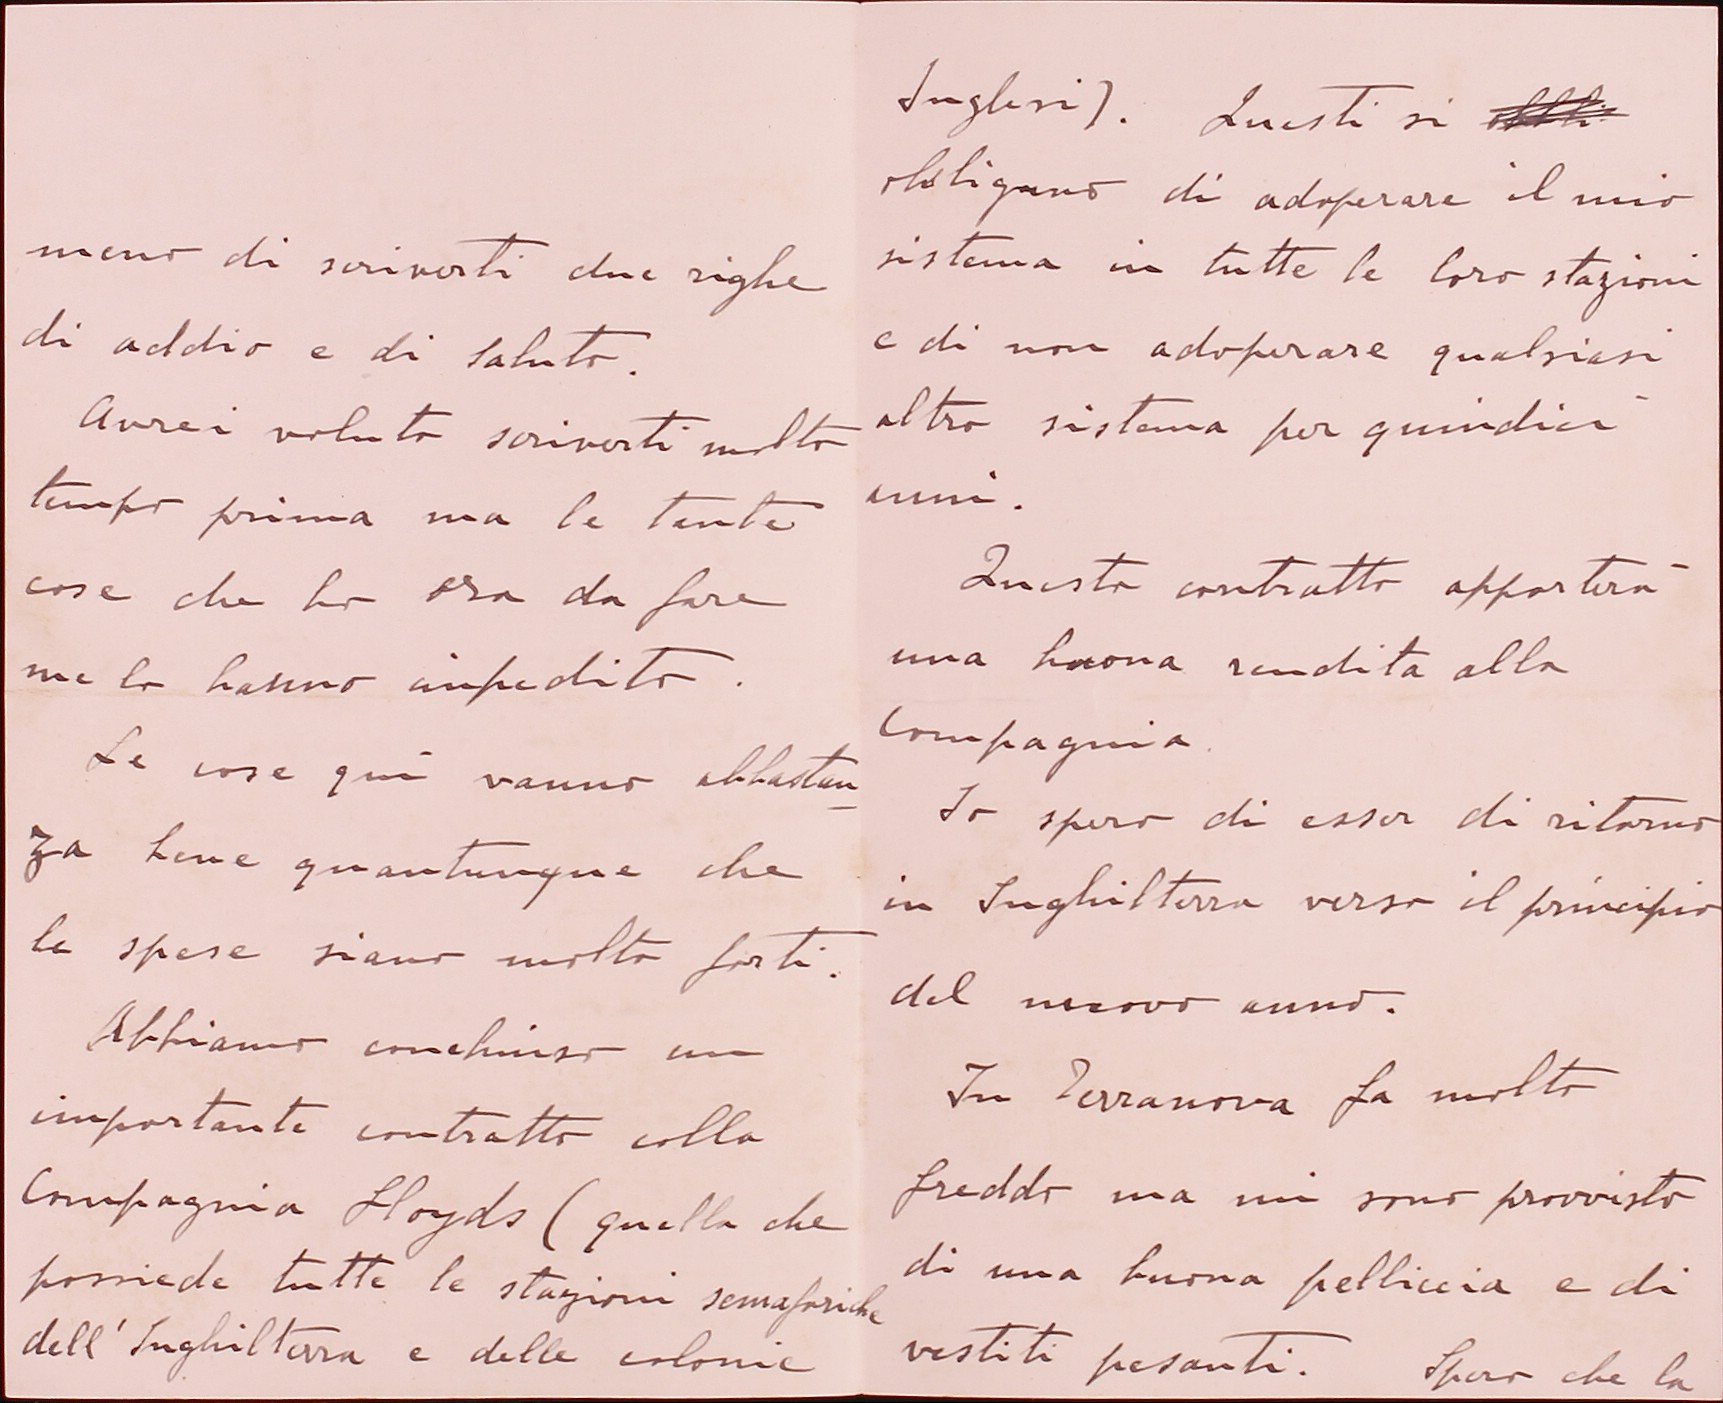 meno di scriverti due righe
di addio e di saluto.
Avrei voluto scriverti molto
tempo prima ma le tante
cose che ho ora da fare
me lo hanno impedito.
Le cose quì vanno abbastan-
za bene quantunque che
le spese siano molto forti.
Abbiamo conchiuso un
importante contratto colla
Compagnia Lloyds (quella che
possiede tutte le stazioni semaforiche
dell'Inghilterra e delle colonie
Inglesi). Questi si
obbligano di adoperare il mio
sistema in tutte le loro stazioni
e di non adoperare qualsiasi
altro sistema per quindici
anni.
Questo contratto apporterà
una buona rendita alla
Compagnia.
Io spero di esser di ritorno
in Inghilterra verso il principio
del nuovo anno.
In Terranova fa molto
freddo ma mi sono provvisto
di una buona pelliccia e di
vestiti pesanti. Spero che la